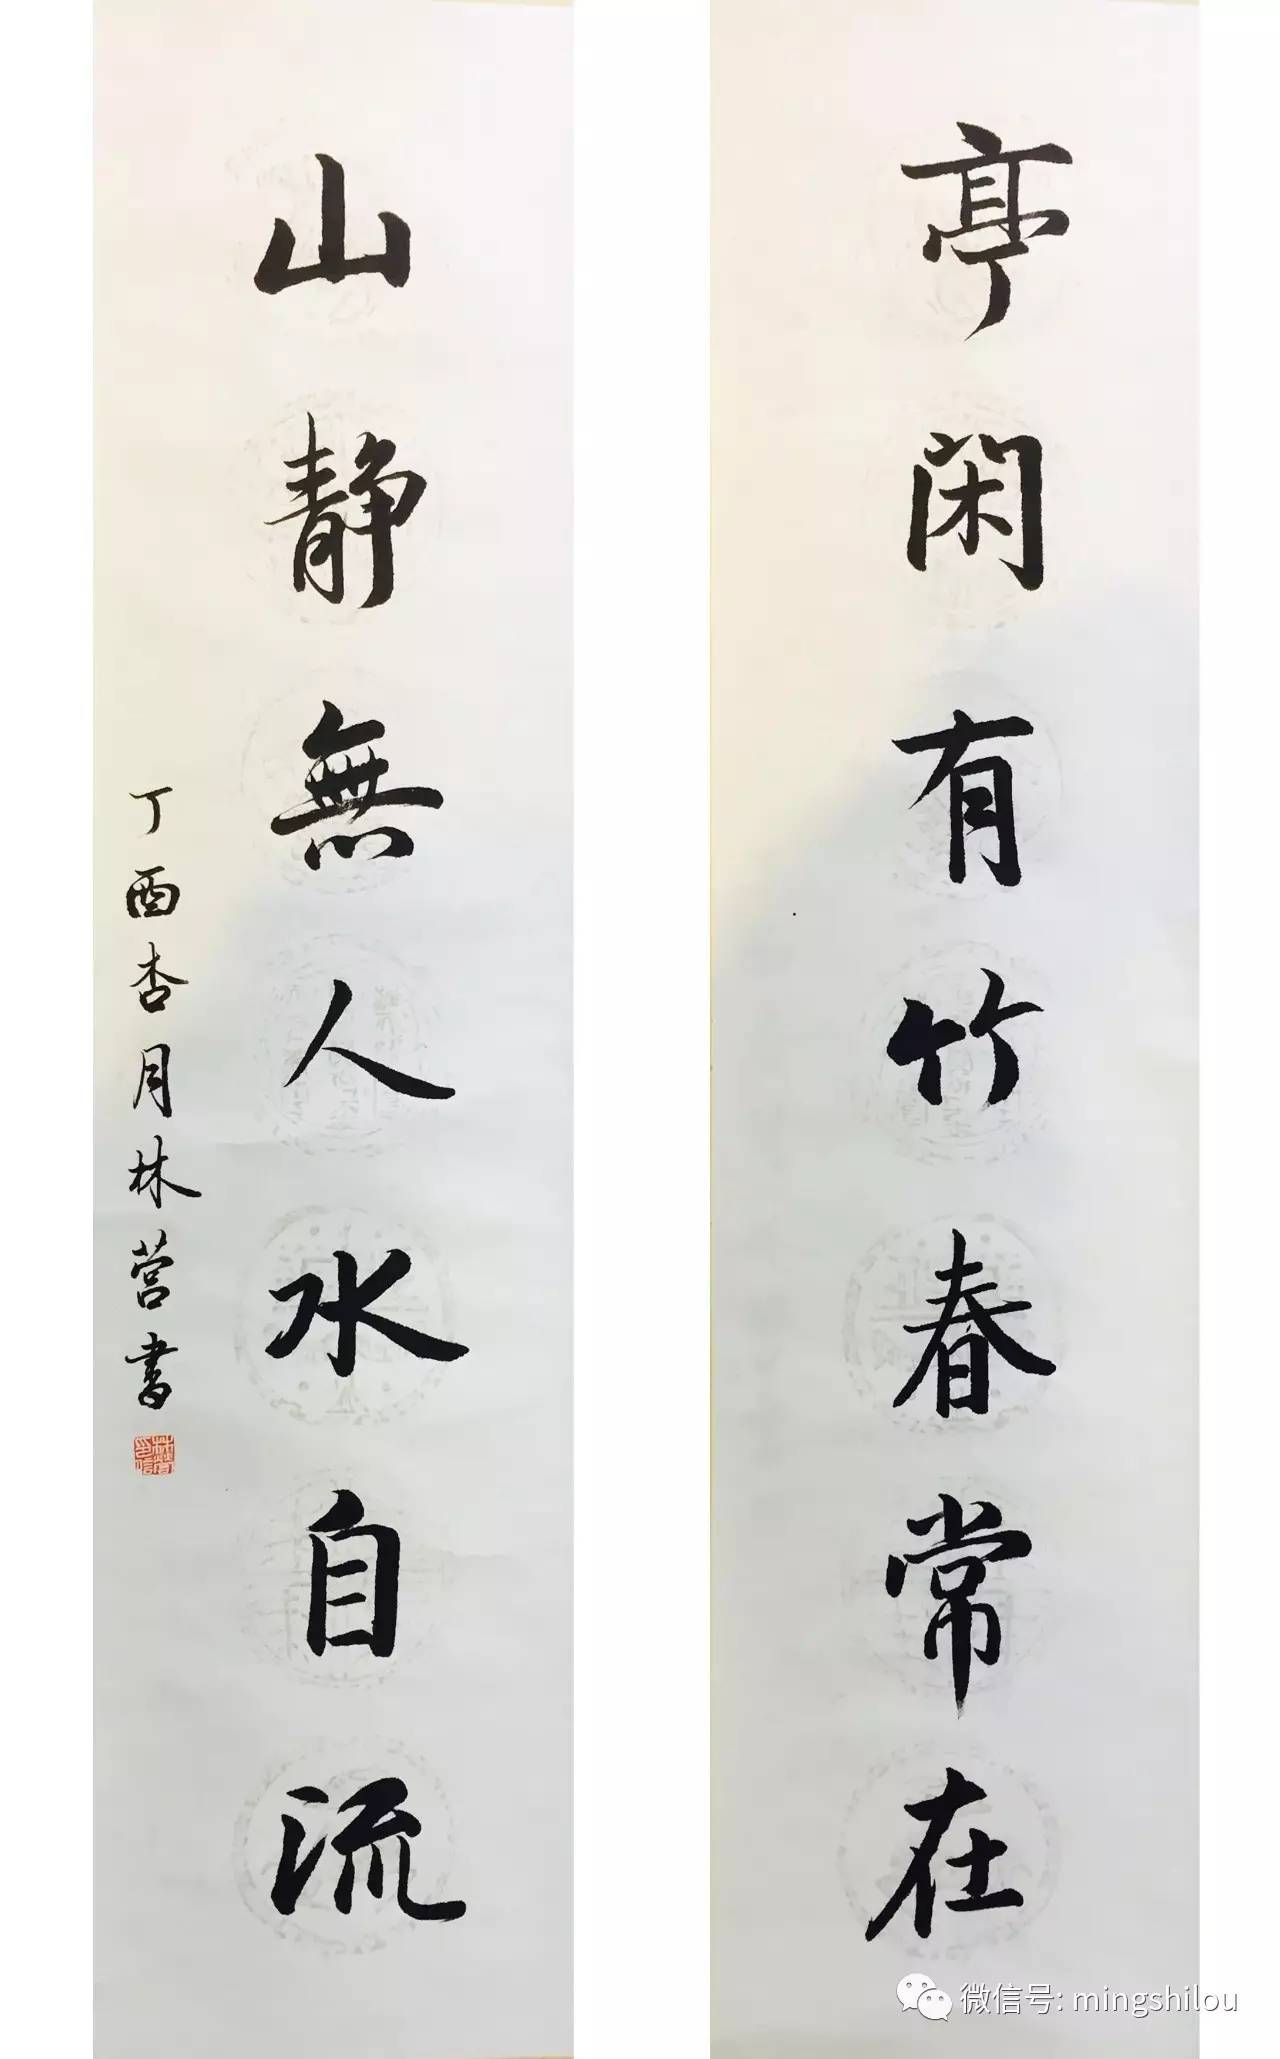 亭閑有竹春常在
山静無人水自流
丁酉杏月林营書
微信号: mingshilou